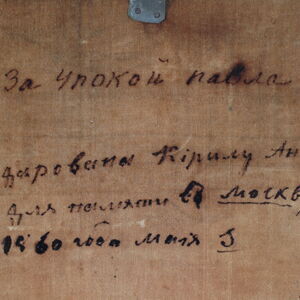 За упокой павла
дарована Кірилу Ан
для памяти в москв
1860 года маія 5